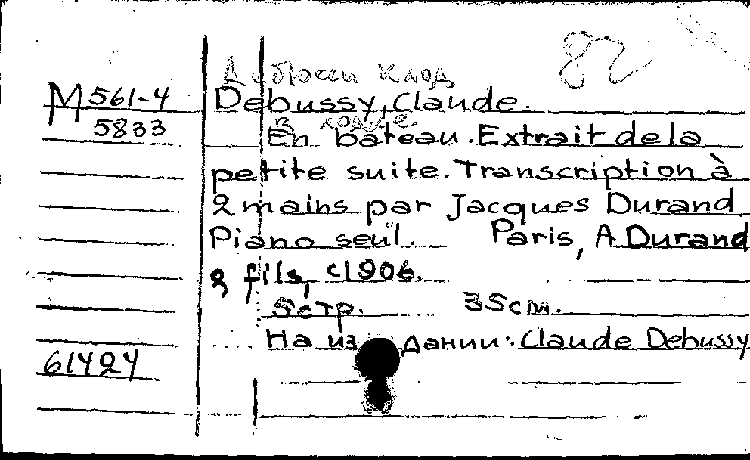 82
Дебюсси Клод
М 561-4 Debussy, Claude.
5833 В лодке.
En bateau. Extrait de la
petite suite. Transcription à
2 mains par Jacques Durand
Piano seul. Paris, A. Durand
& fils, c1906.
5стр. 35cm.
На издании: Claude Debussy
61424